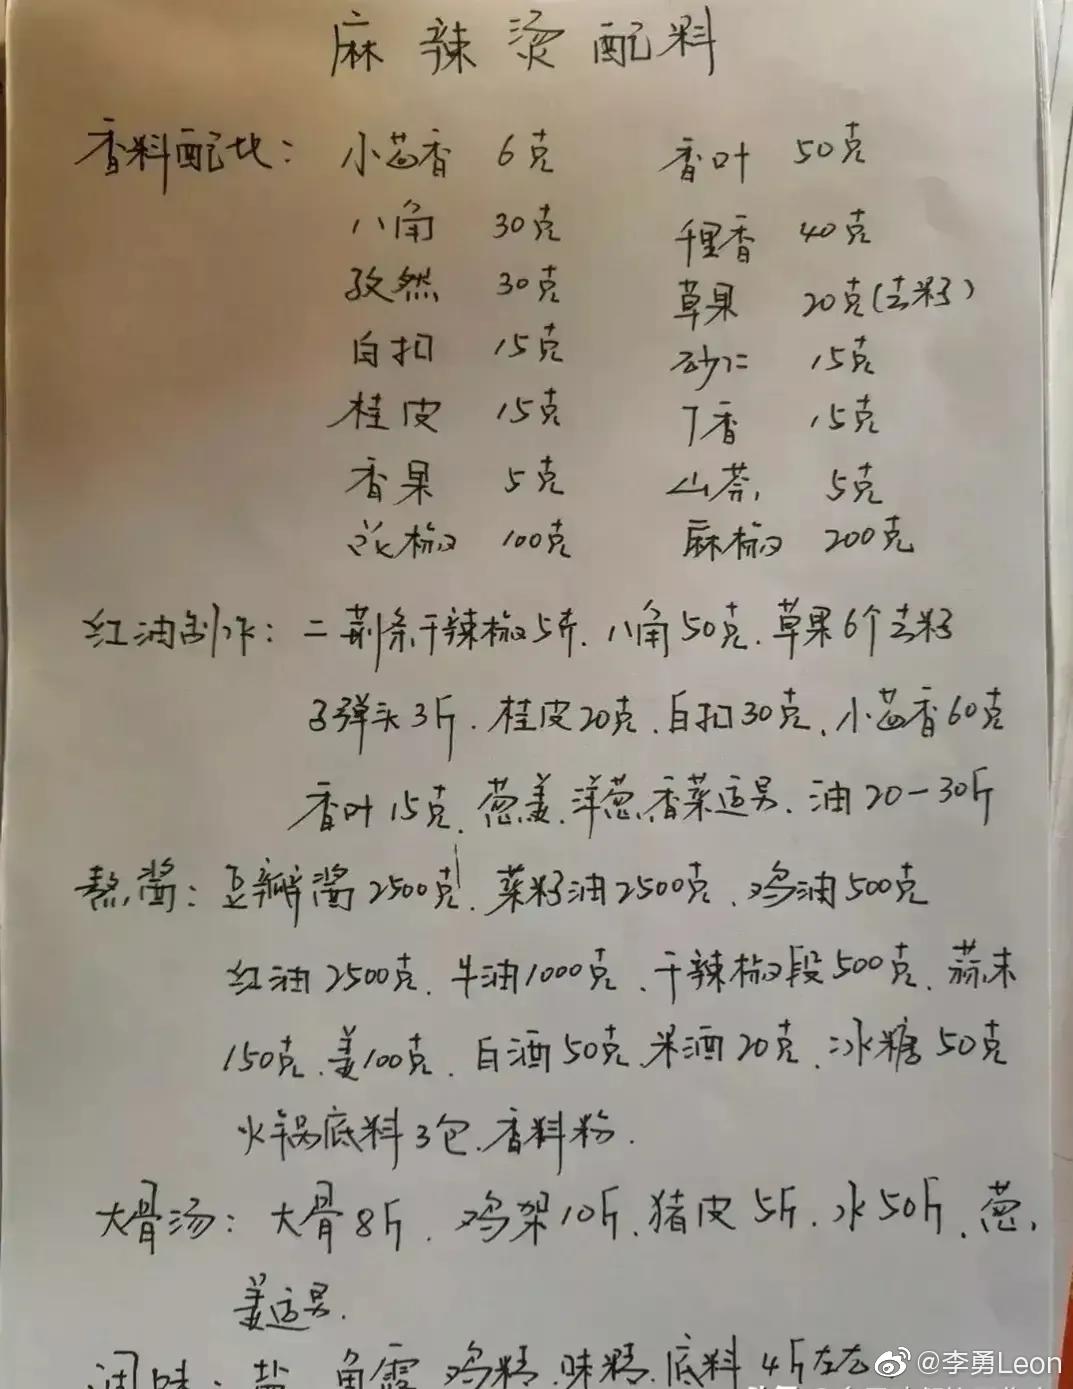 麻辣烫配料
香料配比： 小茴香 6克 香叶 50克
八角 30克 千里香 40克
孜然 30克 草果 20克(去籽)
白扣 15克 砂仁 15克
桂皮 15克 丁香 15克
香果 5克 山萘 5克
花椒 100克 麻椒 200克
红油制作：二荆条干辣椒5斤、八角50克、草果6个去籽
子弹头3斤、桂皮20克、白扣30克、小茴香60克
香叶15克、葱、姜、洋葱、香菜适另、油20-30斤
熬酱：豆瓣酱2500克、菜籽油2500克、鸡油500克
红油2500克、牛油1000克、干辣椒段500克、蒜末
150克、姜100克、白酒50克、米酒20克、冰糖50克
火锅底料3包、香料粉.
大骨汤：大骨8斤、鸡架10斤、猪皮5斤、水50斤、葱、
姜适另.
调味：盐 鱼露 鸡精、味精、底料4斤左右
@李勇Leon